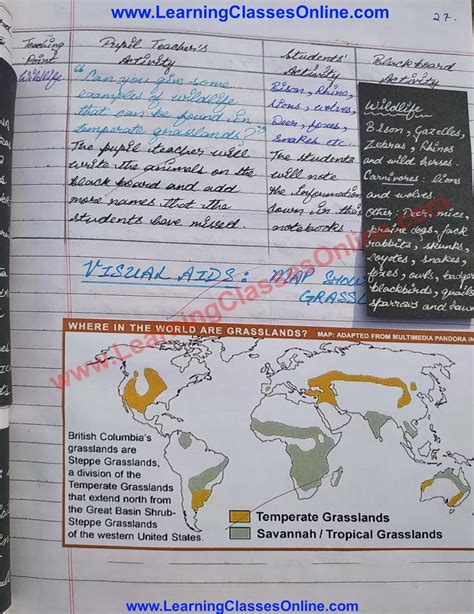 www.LearningClassesOnline.com
27.
Teaching Point
Pupil Teacher's Activity
Students' Activity
Blackboard Activity
Wildlife
"Can you give some
examples of wildlife
that can be found in
temperate grasslands?"
The pupil teacher will
write the animals on the
black board and add
more names that the
students have missed.
Bison, Rhino,
Lions, wolves,
Deer, foxes,
Snakes etc.
The students
will note
the Information
down in their
notebooks.
Wildlife
Bison, Gazelles,
Zebras, Rhinos
and wild horses.
Carnivores: lions
and wolves
Other: Deer, mice,
prairie dogs, jack
rabbits, skunks
coyotes, snakes,
foxes, owls, badgers
blackbirds, quails
sparrows and hawks
VISUAL AIDS: MAP SHOW
GRASSL
www.LearningClassesOnline.com
WHERE IN THE WORLD ARE GRASSLANDS? MAP: ADAPTED FROM MULTIMEDIA PANDORA IN
British Columbia's
grasslands are
Steppe Grasslands,
a division of the
Temperate Grasslands
that extend north from
the Great Basin Shrub-
Steppe Grasslands
of the western United States.
Temperate Grasslands
Savannah / Tropical Grasslands
www.LearningClassesOnline.com